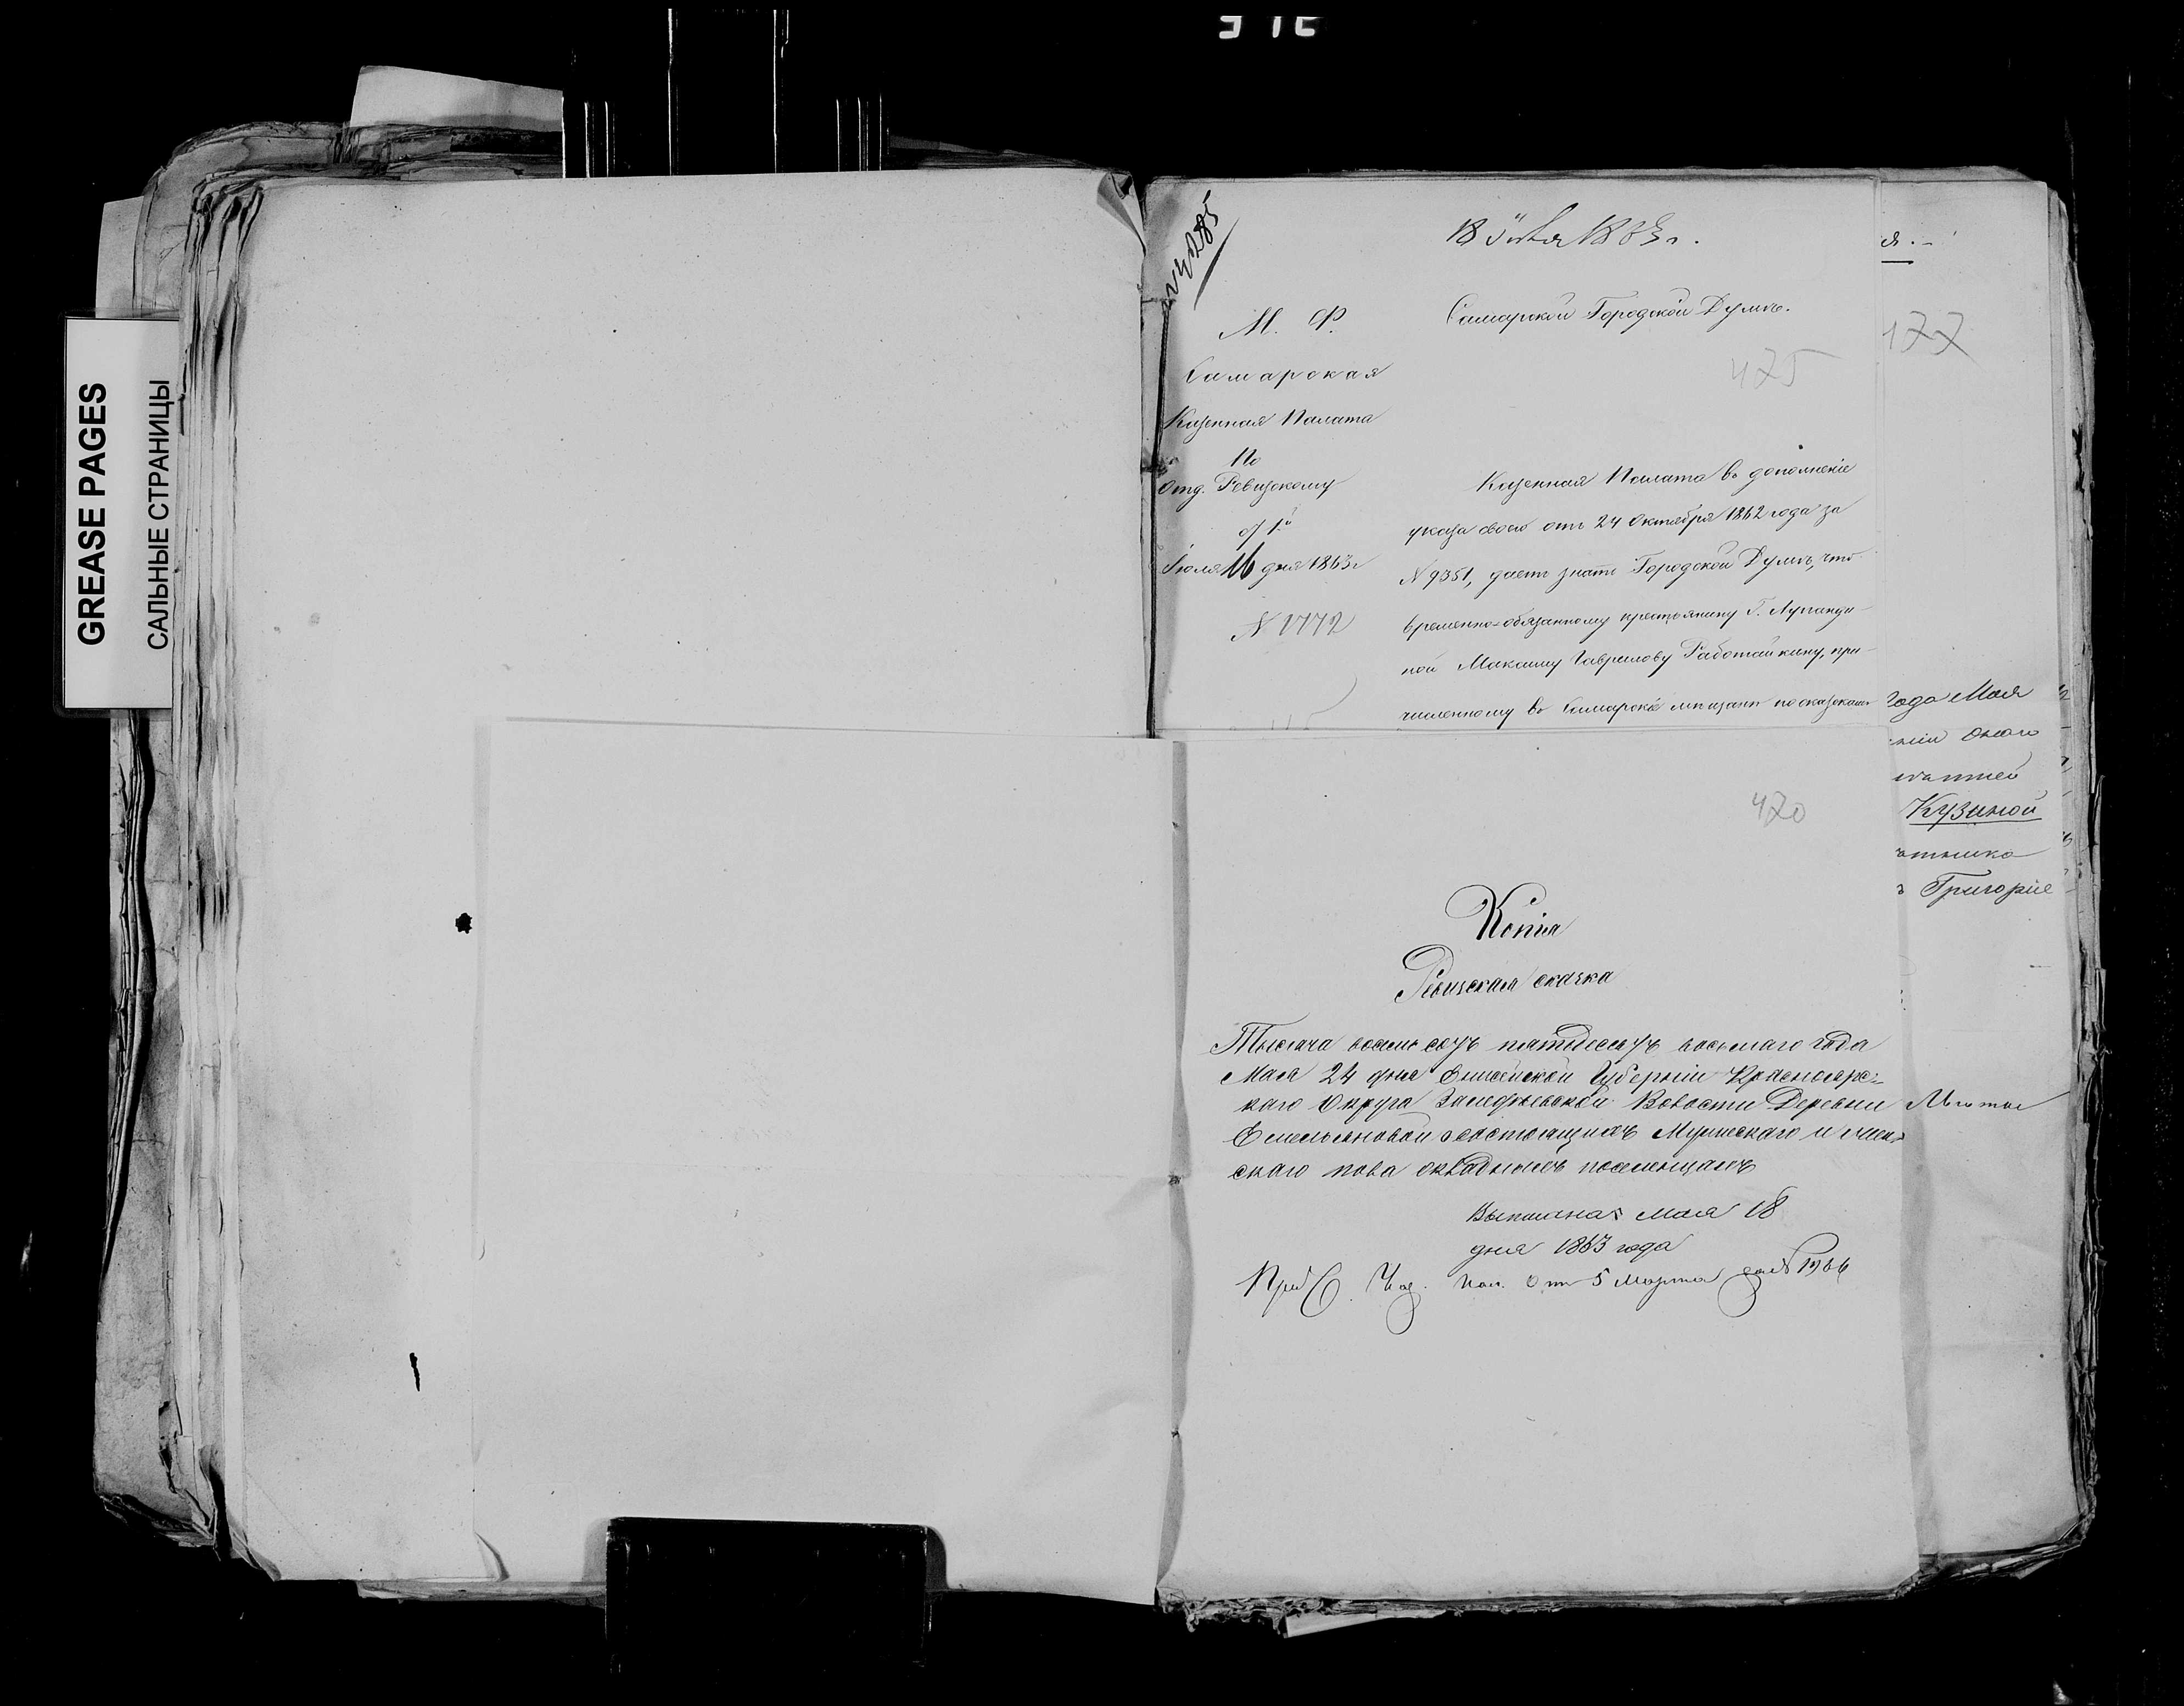 GREASE PAGES
САЛЬНЫЕ СТРАНИЦЫ
18 Июля 1863 г.
М. Ф.
Самарская
Казенная Палата
По
Отд. Ревизскому
Июля 16 дня 1863 г
N 1772
Самарской Городской Думѣ.
475
Казенная Палата въ дополненіе
указа своего отъ 24 Октября 1862 года за
N 9351, даетъ знать Городской Думѣ, что
временно-обязанному крестьянину Г.
ной Максиму Гаврилову Работайкину, при-
численному въ Самарскіе мѣщане по сказкамъ
177
года Мая
оного
Кузиной
Григорiе
470
Копія
Ревизская сказка
Тысяча восемьсотъ пятьдесятъ восьмаго года
Мая 24 дня Енисейской Губерніи Красноярс-
каго Округа Заледѣевской Волости Деревни
Емельяновой состоящихъ Мужескаго и жен-
скаго пола окладныхъ поселенцахъ
Выписана Мая 18
дня 1863 года
При С. Каз. Пал. отъ 5 Марта